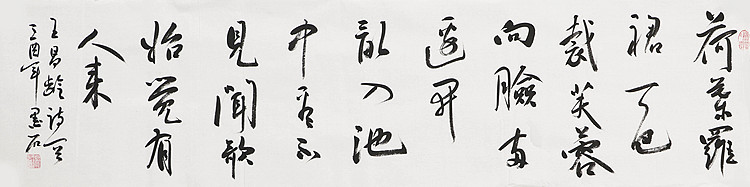 荷葉羅
裙一色
裁芙蓉
向臉兩
邊開
亂入池
中看不
見聞歌
始覺有
人来
王昌齡詩
酉年墨石